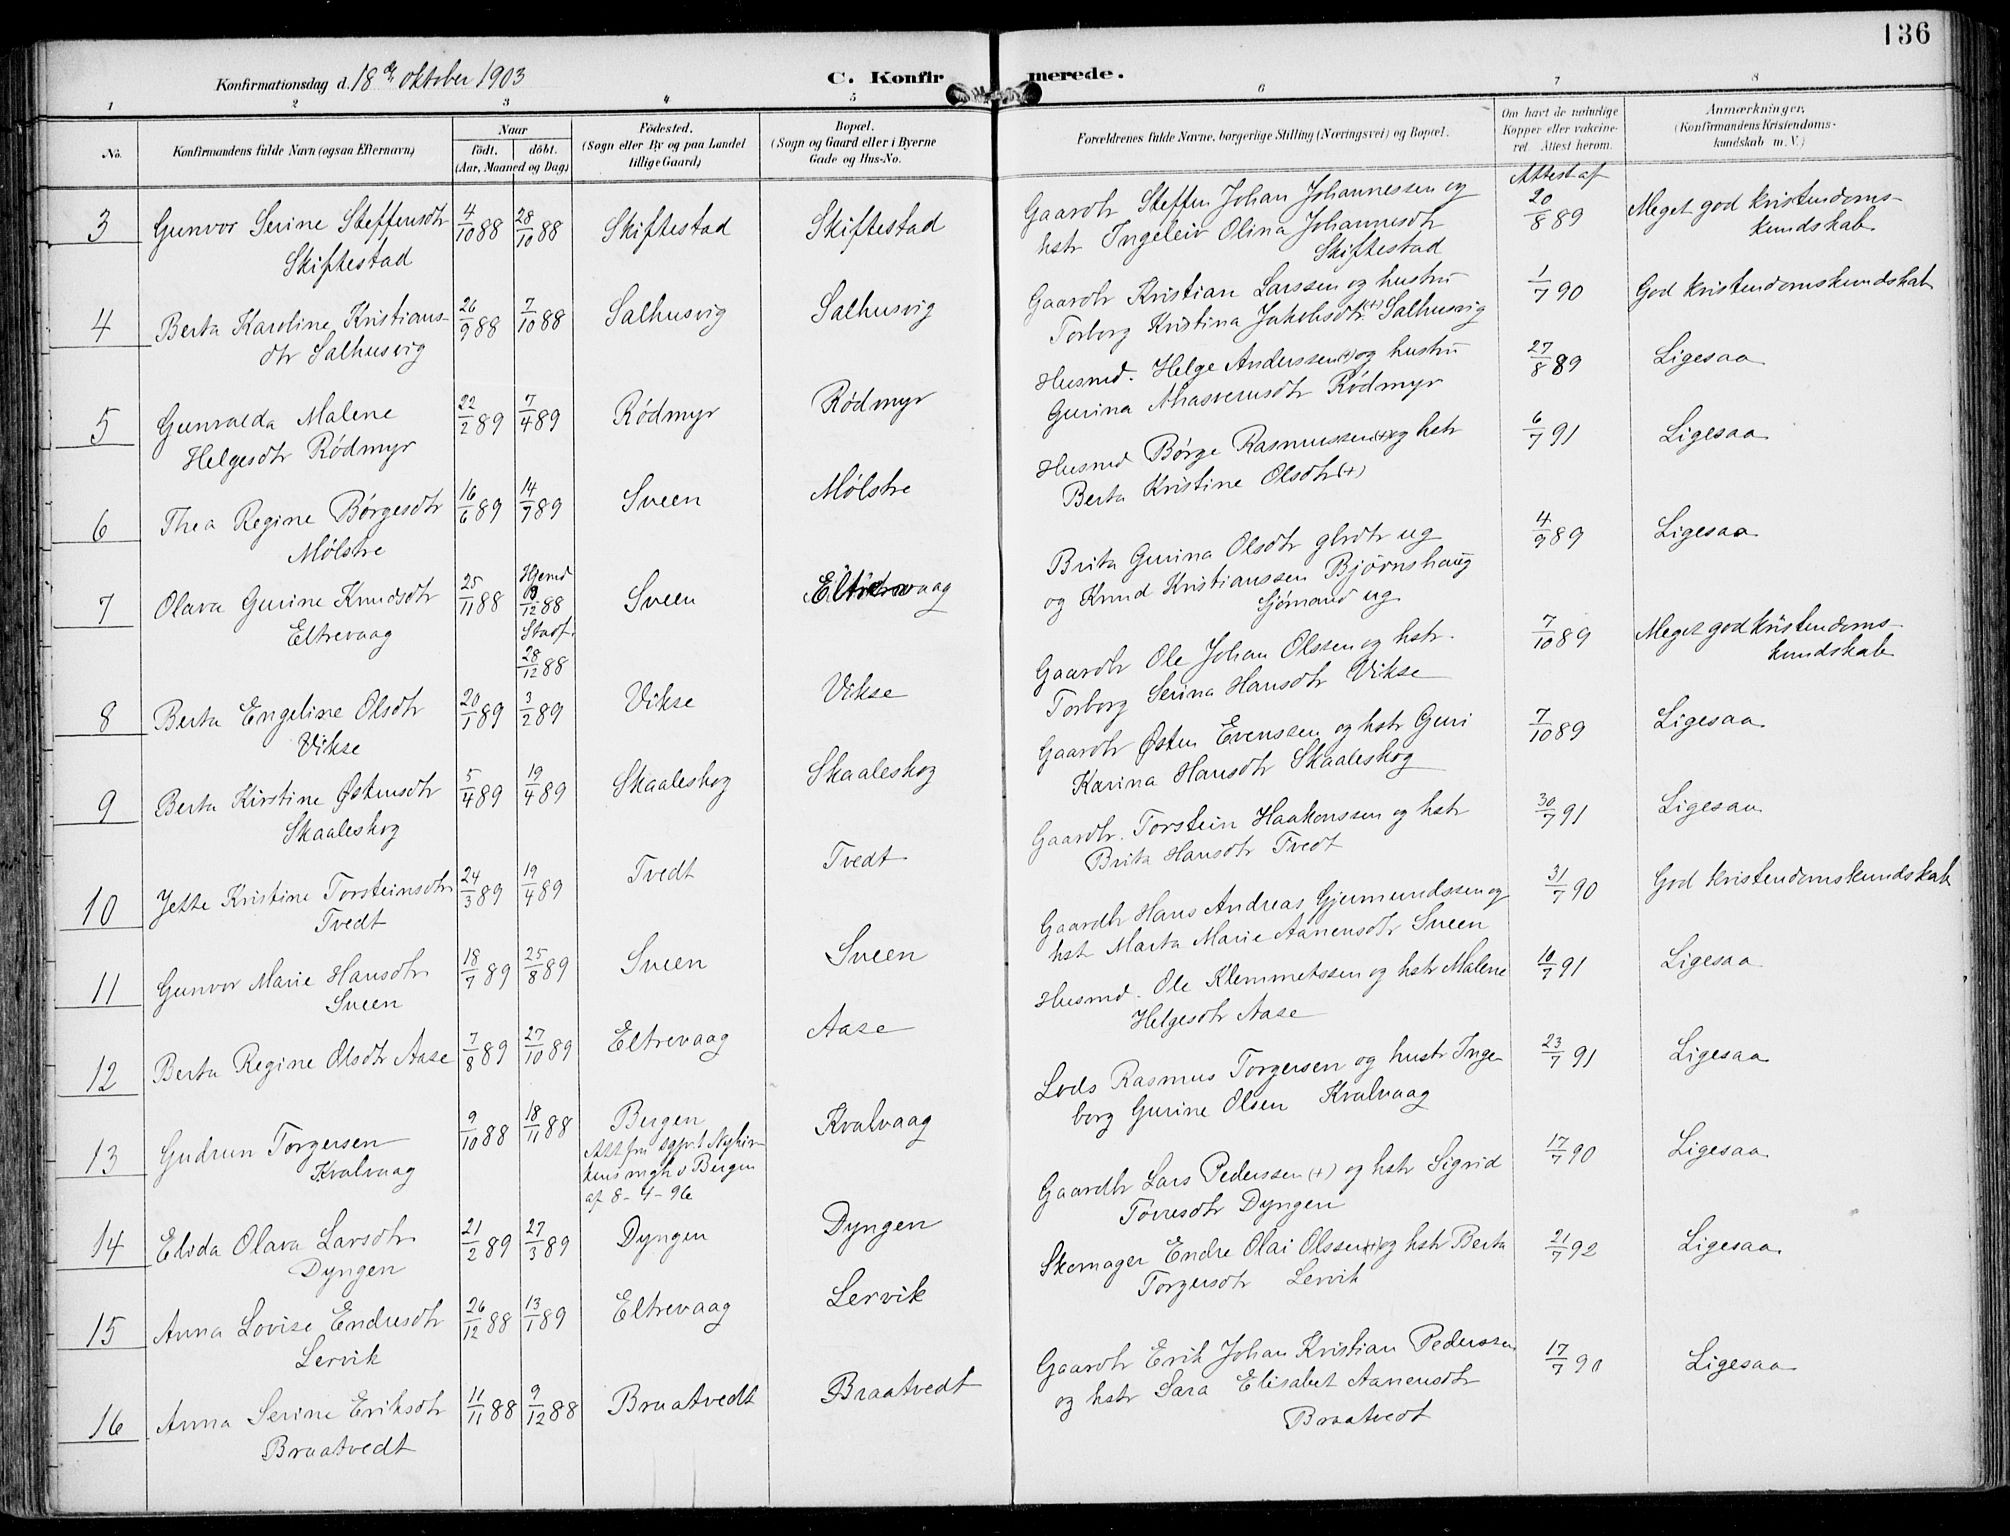 136
Konfirmationsdag d. 18de oktober 1903
C. Konfirmerede.
1 2 3 4 5 6 7 8
No.
Konfirmandens fulde Navn (ogsaa Efternavn)
Naar
født. døbt.
(Aar, Maaned og Dag)
Fødested.
(Sogn eller By og paa Landet
tillige Gaard)
Bopæl.
(Sogn og Gaard eller i Byerne
Gade og Hus-No.
Forældrenes fulde Navne, borgerlige Stilling (Næringsvei) og Bopæl.
Om havt de naturlige
Kopper eller vakcine-
ret. Attest herom.
Anmærkninger.
(Konfirmandens Kristendoms-
kundskab m. V.)
Attest af
3 Gunvor Serine Steffensdtr 4/10 88 28/10 88 Skiftestad Skiftestad Gaardbr Steffen Johan Johannessen og 20/8 89 Meget god kristendoms-
Skiftestad hstr Ingeleiv Olina Johannesdtr kundskab
Skiftestad
4 Berta Karoline Kristians- 26/9 88 7/10 88 Salhusvig Salhusvig Gaardbr Kristian Larssen og hustru 1/7 90 God kristendomskundskab
dtr Salhusvig Torborg Kristina Jakobsdtr (+) Salhusvig
5 Gunvalda Malene 22/2 89 7/4 89 Rödmyr Rödmyr Husmd. Helge Anderssen (+) og hustru 27/8 89 Ligesaa
Helgesdtr Rödmyr Gurina Ahasverusdtr Rödmyr
6 Thea Regine Børgesdtr 16/6 89 14/7 89 Sveen Mølstre Husmd Børge Rasmussen (+) og hstr 6/7 91 Ligesaa
Mølstre Berta Kristine Olsdtr (+)
7 Olava Gurine Knudsdtr 25/11 88 Hjemd 9/12 88 Stadf. 28/12 88 Sveen Eltrevaag Brita Gurina Olsdtr gbrdtr ug 4/9 89 Ligesaa
Eltrevaag og Knud Kristianssen Bjørnshaug
Sjømand ug
8 Berta Engeline Olsdtr 20/1 89 3/2 89 Vikse Vikse Gaardbr Ole Johan Olssen og hstr. 7/10 89 Meget god kristendoms-
Vikse Torborg Serina Hansdtr Vikse kundskab
9 Berta Kirstine Østensdtr 5/4 89 19/4 89 Skaaleskog Skaaleskog Gaardbr Østen Evenssen og hstr Guri 7/10 89 Ligesaa
Skaaleskog Karina Hansdtr Skaaleskog
10 Jette Kristine Torsteinsdtr 24/3 89 19/4 89 Tvedt Tvedt Gaardbr. Torstein Haakonssen og hstr 30/7 91 Ligesaa
Tvedt Brita Hansdtr Tvedt
11 Gunvor Marie Hansdtr 18/7 89 25/8 89 Sveen Sveen Gaardbr Hans Andreas Gjermundssen og 31/7 90 God kristendomskundskab
Sveen hst Marta Marie Aanensdtr Sveen
12 Berta Regine Olsdtr Aase 7/8 89 27/10 89 Eltrevaag Aase Husmd. Ole Klemmetssen og hstr Malene 10/7 91 Ligesaa
Helgesdtr Aase
13 Gudrun Torgersen 9/10 88 18/11 88 Bergen Kvalvaag Lods Rasmus Torgersen og hustr Inge 23/7 91 Ligesaa
Kvalvaag borg Gurine Olsen Kvalvaag
Bergen
af 8-4-96
14 Elida Olava Larsdtr 21/2 89 27/3 89 Dyngen Dyngen Gaardbr Lars Pederssen (+) og hstr Sigrid 17/7 90 Ligesaa
Dyngen Torresdtr Dyngen
15 Anna Lovise Endresdtr 26/12 88 13/1 89 Eltrevaag Lervik Skomager Endre Olai Olssen (+) og hstr Berta 21/7 92 Ligesaa
Lervik Torgersdtr Lervik
16 Anna Serine Eriksdtr 11/11 88 9/12 88 Braatvedt Braatvedt Gaardbr Erik Johan Kristian Pederssen 17/7 90 Ligesaa
Braatvedt og hstr Sara Elisabet Aanensdtr
Braatvedt